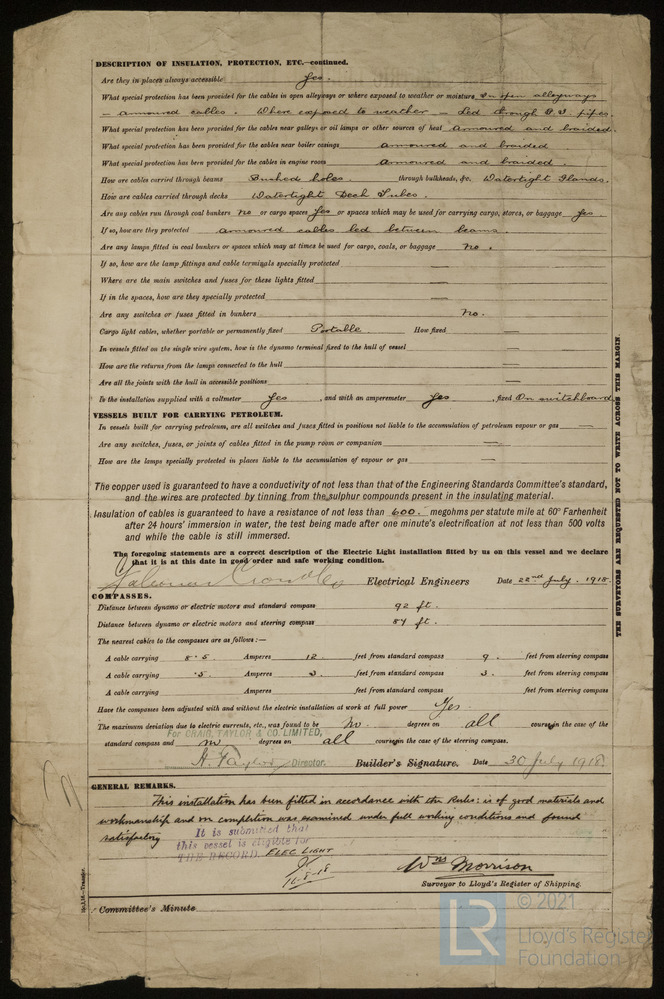 DESCRIPTION OF INSULATION, PROTECTION, ETC.—continued.
Are they in places always accessible Yes.
What special protection has been provided for the cables in open alleyways or where exposed to weather or moisture In open alleyways
— armoured cables. Where exposed to weather — Led through G.I. pipes.
What special protection has been provided for the cables near galleys or oil lamps or other sources of heat Armoured and braided.
What special protection has been provided for the cables near boiler casings armoured and braided
What special protection has been provided for the cables in engine room armoured and braided.
How are cables carried through beams Bushed holes. through bulkheads, &c. Watertight Glands.
How are cables carried through decks Watertight Deck Tubes.
Are any cables run through coal bunkers No or cargo spaces Yes or spaces which may be used for carrying cargo, stores, or baggage Yes.
If so, how are they protected armoured cables led between beams.
Are any lamps fitted in coal bunkers or spaces which may at times be used for cargo, coals, or baggage No.
If so, how are the lamp fittings and cable terminals specially protected —
Where are the main switches and fuses for these lights fitted —
If in the spaces, how are they specially protected —
Are any switches or fuses fitted in bunkers No.
Cargo light cables, whether portable or permanently fixed Portable. How fixed —
In vessels fitted on the single wire system, how is the dynamo terminal fixed to the hull of vessel —
How are the returns from the lamps connected to the hull —
Are all the joints with the hull in accessible positions —
Is the installation supplied with a voltmeter Yes, and with an amperemeter Yes, fixed On switchboard
VESSELS BUILT FOR CARRYING PETROLEUM.
In vessels built for carrying petroleum, are all switches and fuses fitted in positions not liable to the accumulation of petroleum vapour or gas —
Are any switches, fuses, or joints of cables fitted in the pump room or companion —
How are the lamps specially protected in places liable to the accumulation of vapour or gas —
The copper used is guaranteed to have a conductivity of not less than that of the Engineering Standards Committee's standard,
and the wires are protected by tinning from the sulphur compounds present in the insulating material.
Insulation of cables is guaranteed to have a resistance of not less than 600. megohms per statute mile at 60° Farhenheit
after 24 hours' immersion in water, the test being made after one minute's electrification at not less than 500 volts
and while the cable is still immersed.
The foregoing statements are a correct description of the Electric Light installation fitted by us on this vessel and we declare
that it is at this date in good order and safe working condition.
Electrical Engineers Date 22nd July. 1918.
COMPASSES.
Distance between dynamo or electric motors and standard compass 92 ft.
Distance between dynamo or electric motors and steering compass 84 ft.
The nearest cables to the compasses are as follows:—
A cable carrying 8.5 Amperes 12 feet from standard compass 9. feet from steering compass
A cable carrying .5 Amperes 3. feet from standard compass 3. feet from steering compass
A cable carrying Amperes feet from standard compass feet from steering compass
Have the compasses been adjusted with and without the electric installation at work at full power Yes
The maximum deviation due to electric currents, etc., was found to be No. degrees on all course in the case of the
standard compass and no degrees on all course in the case of the steering compass.
For CRAIG, TAYLOR & CO. LIMITED,
H. Taylor Director. Builder's Signature. Date 30 July 1918
GENERAL REMARKS.
This installation has been fitted in accordance with the Rules: is of good materials and
workmanship and on completion was examined under full working conditions and found
satisfactory
It is submitted that
this vessel is eligible for
THE RECORD ELEC LIGHT
16-8-18
Wm Morrison
Surveyor to Lloyd's Register of Shipping.
Committee's Minute
THE SURVEYORS ARE REQUESTED NOT TO WRITE ACROSS THIS MARGIN.
© 2021
LR
Lloyd's Register
Foundation